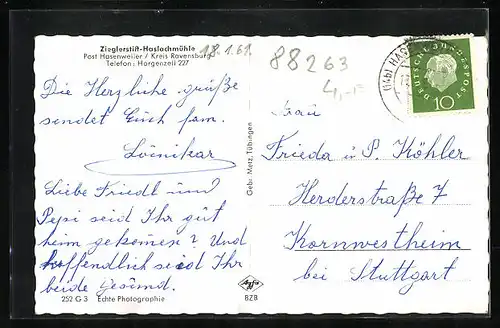 Zieglerstift-Haslachmühle
Post Hasenweiler / Kreis Ravensburg
Telefon: Horgenzell 227
18.1.61.
88263
4,-
DEUTSCHE BUNDESPOST
10
Die Herzliche grüße
sendet Euch fam.
Liebe Friedl und
Pepi seid Ihr gut
heim gekommen? Und
hoffendlich seid Ihr
beide Gesund.
Gebr. Metz, Tübingen
Frau
Frieda u P. Köhler
Herderstraße 7
Kornwestheim
bei Stuttgart
252 G 3 Echte Photographie
Agfa
BZB